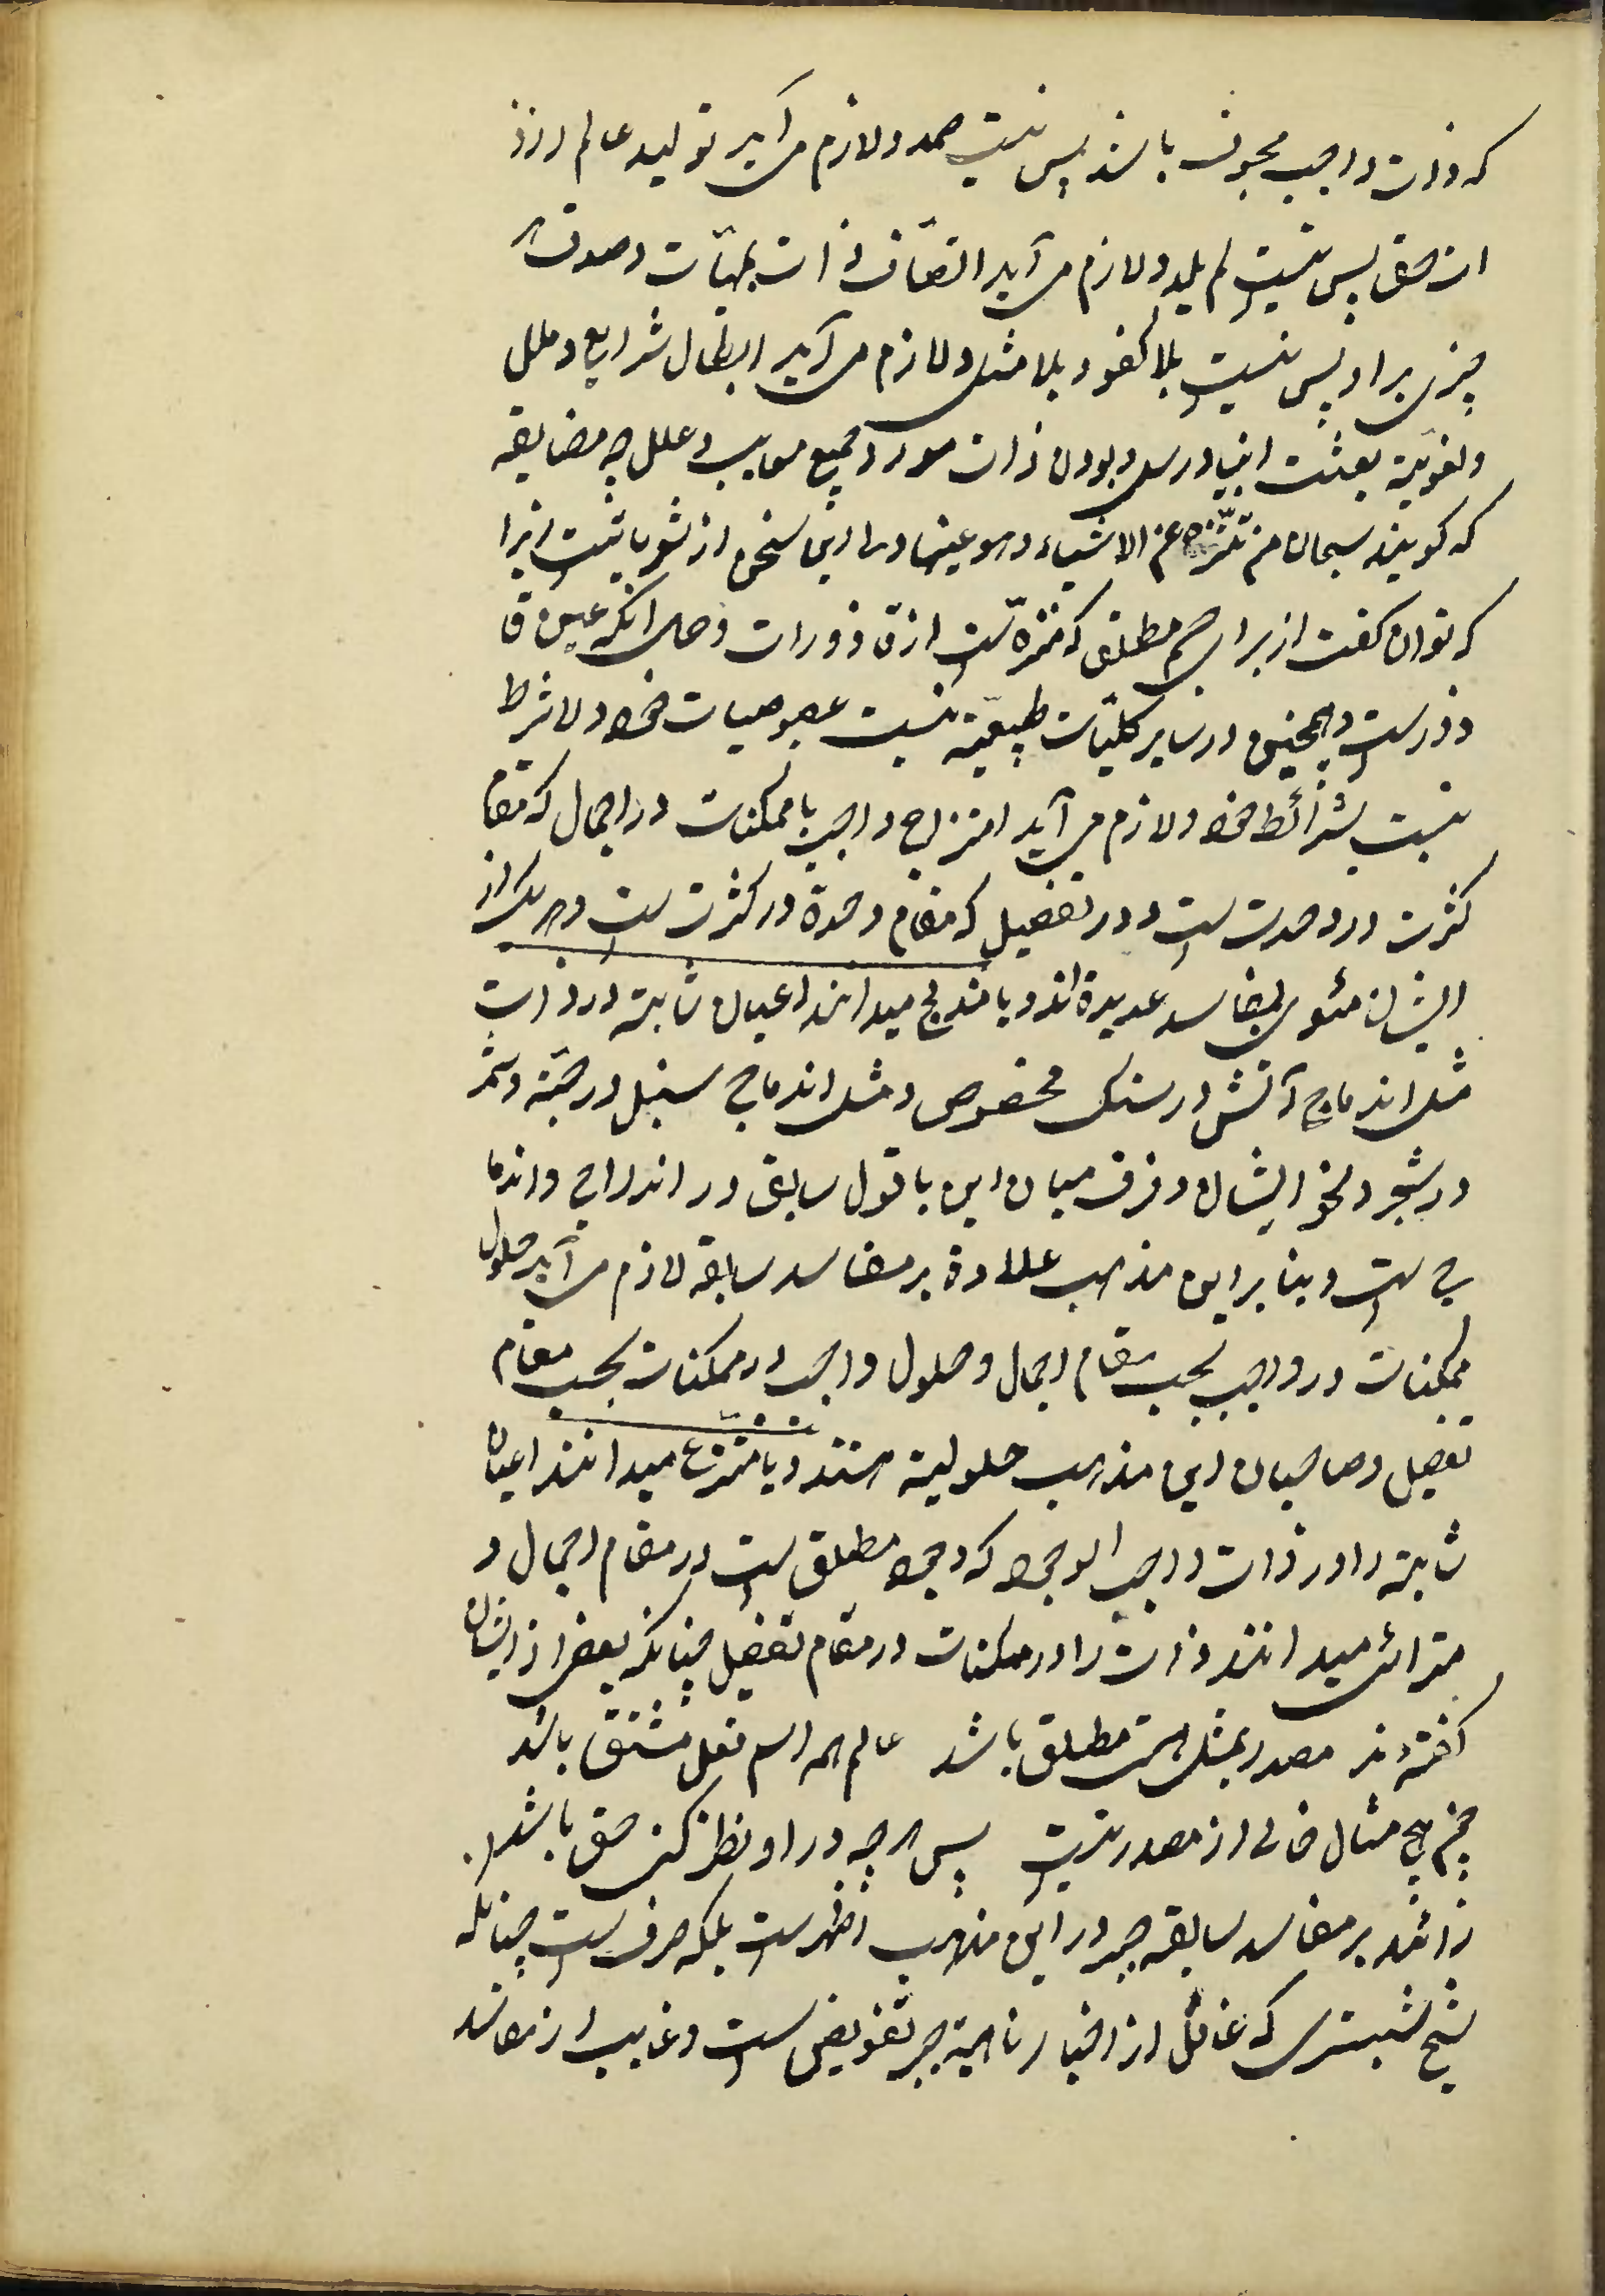 که ذات واجب مجوف باشد پس نیست صمد و لازم می آید تولید عالم از ذ
ات حق پس نیست لم یلد و لازم می آید اتصاف ذات بهیآت و صدق هر
چیزی بر او پس نیست بلا کفو و بلا مثل و لازم می آید ابطال شرایع و ملل
و لغویّة بعثت انبیا و رسل و بودن ذات مورد جمیع معایب و علل چه مضایقه
که کویند سبحان من تنزّه عن الاشیاء و هو عینها و را این سخن از ثنویاتست زیرا
که توان کفت از برای جسم مطلق که منزّه است از قاذورات و حال انکه عین قا
ذورست و همچنین در سایر کلیّات طبیعیّة نسبت بخصوصیات خود و لا شرط
نسبت بشرائط خود و لازم می آید امتزاج واجب با ممکنات در اجمال که مقام
کثرت در وحدت است و در تفصیل که مقام وحدة در کثرت است و هر یک از
ایشان مئوی بمفاسد عدیدة اند و یا مندمج میدانند اعیان ثابته در ذات
مثل اندماج آتش در سنک مخصوص و مثل اندماج سنبل در حبّه و ثمر
در شجر و نحو ایشان و فرق میان این با قول سابق در اندراج و اندما
ج است و بنا بر این مذهب علاوة بر مفاسد سابقه لازم می آید حلول
ممکنات در واجب بحسب مقام اجمال و حلول واجب در ممکنات بحسب مقام
تفصیل و صاحبان این مذهب حلولیة هستند و یا منتزع میدانند اعیان
ثابته را در ذات واجب الوجود که وجود مطلق است در مقام اجمال و
مترائی میدانند ذات را در ممکنات در مقام تفصیل چنانکه بعضی از ایشان
کفته اند مصدر بمثل هستی مطلق باشد عالم همه اسم فعل مشتق باشد
چون هیچ مثال خالی از مصدر نیست پس هر چه در او نظر کنی حق باشد
زائد بر مفاسد سابقه جبر در این مذهب اظهر ست بلکه صرف است چنانکه
شیخ شبستری که غافل از اخبار ناهیة جبر تفویض است و غایب از مفاسد